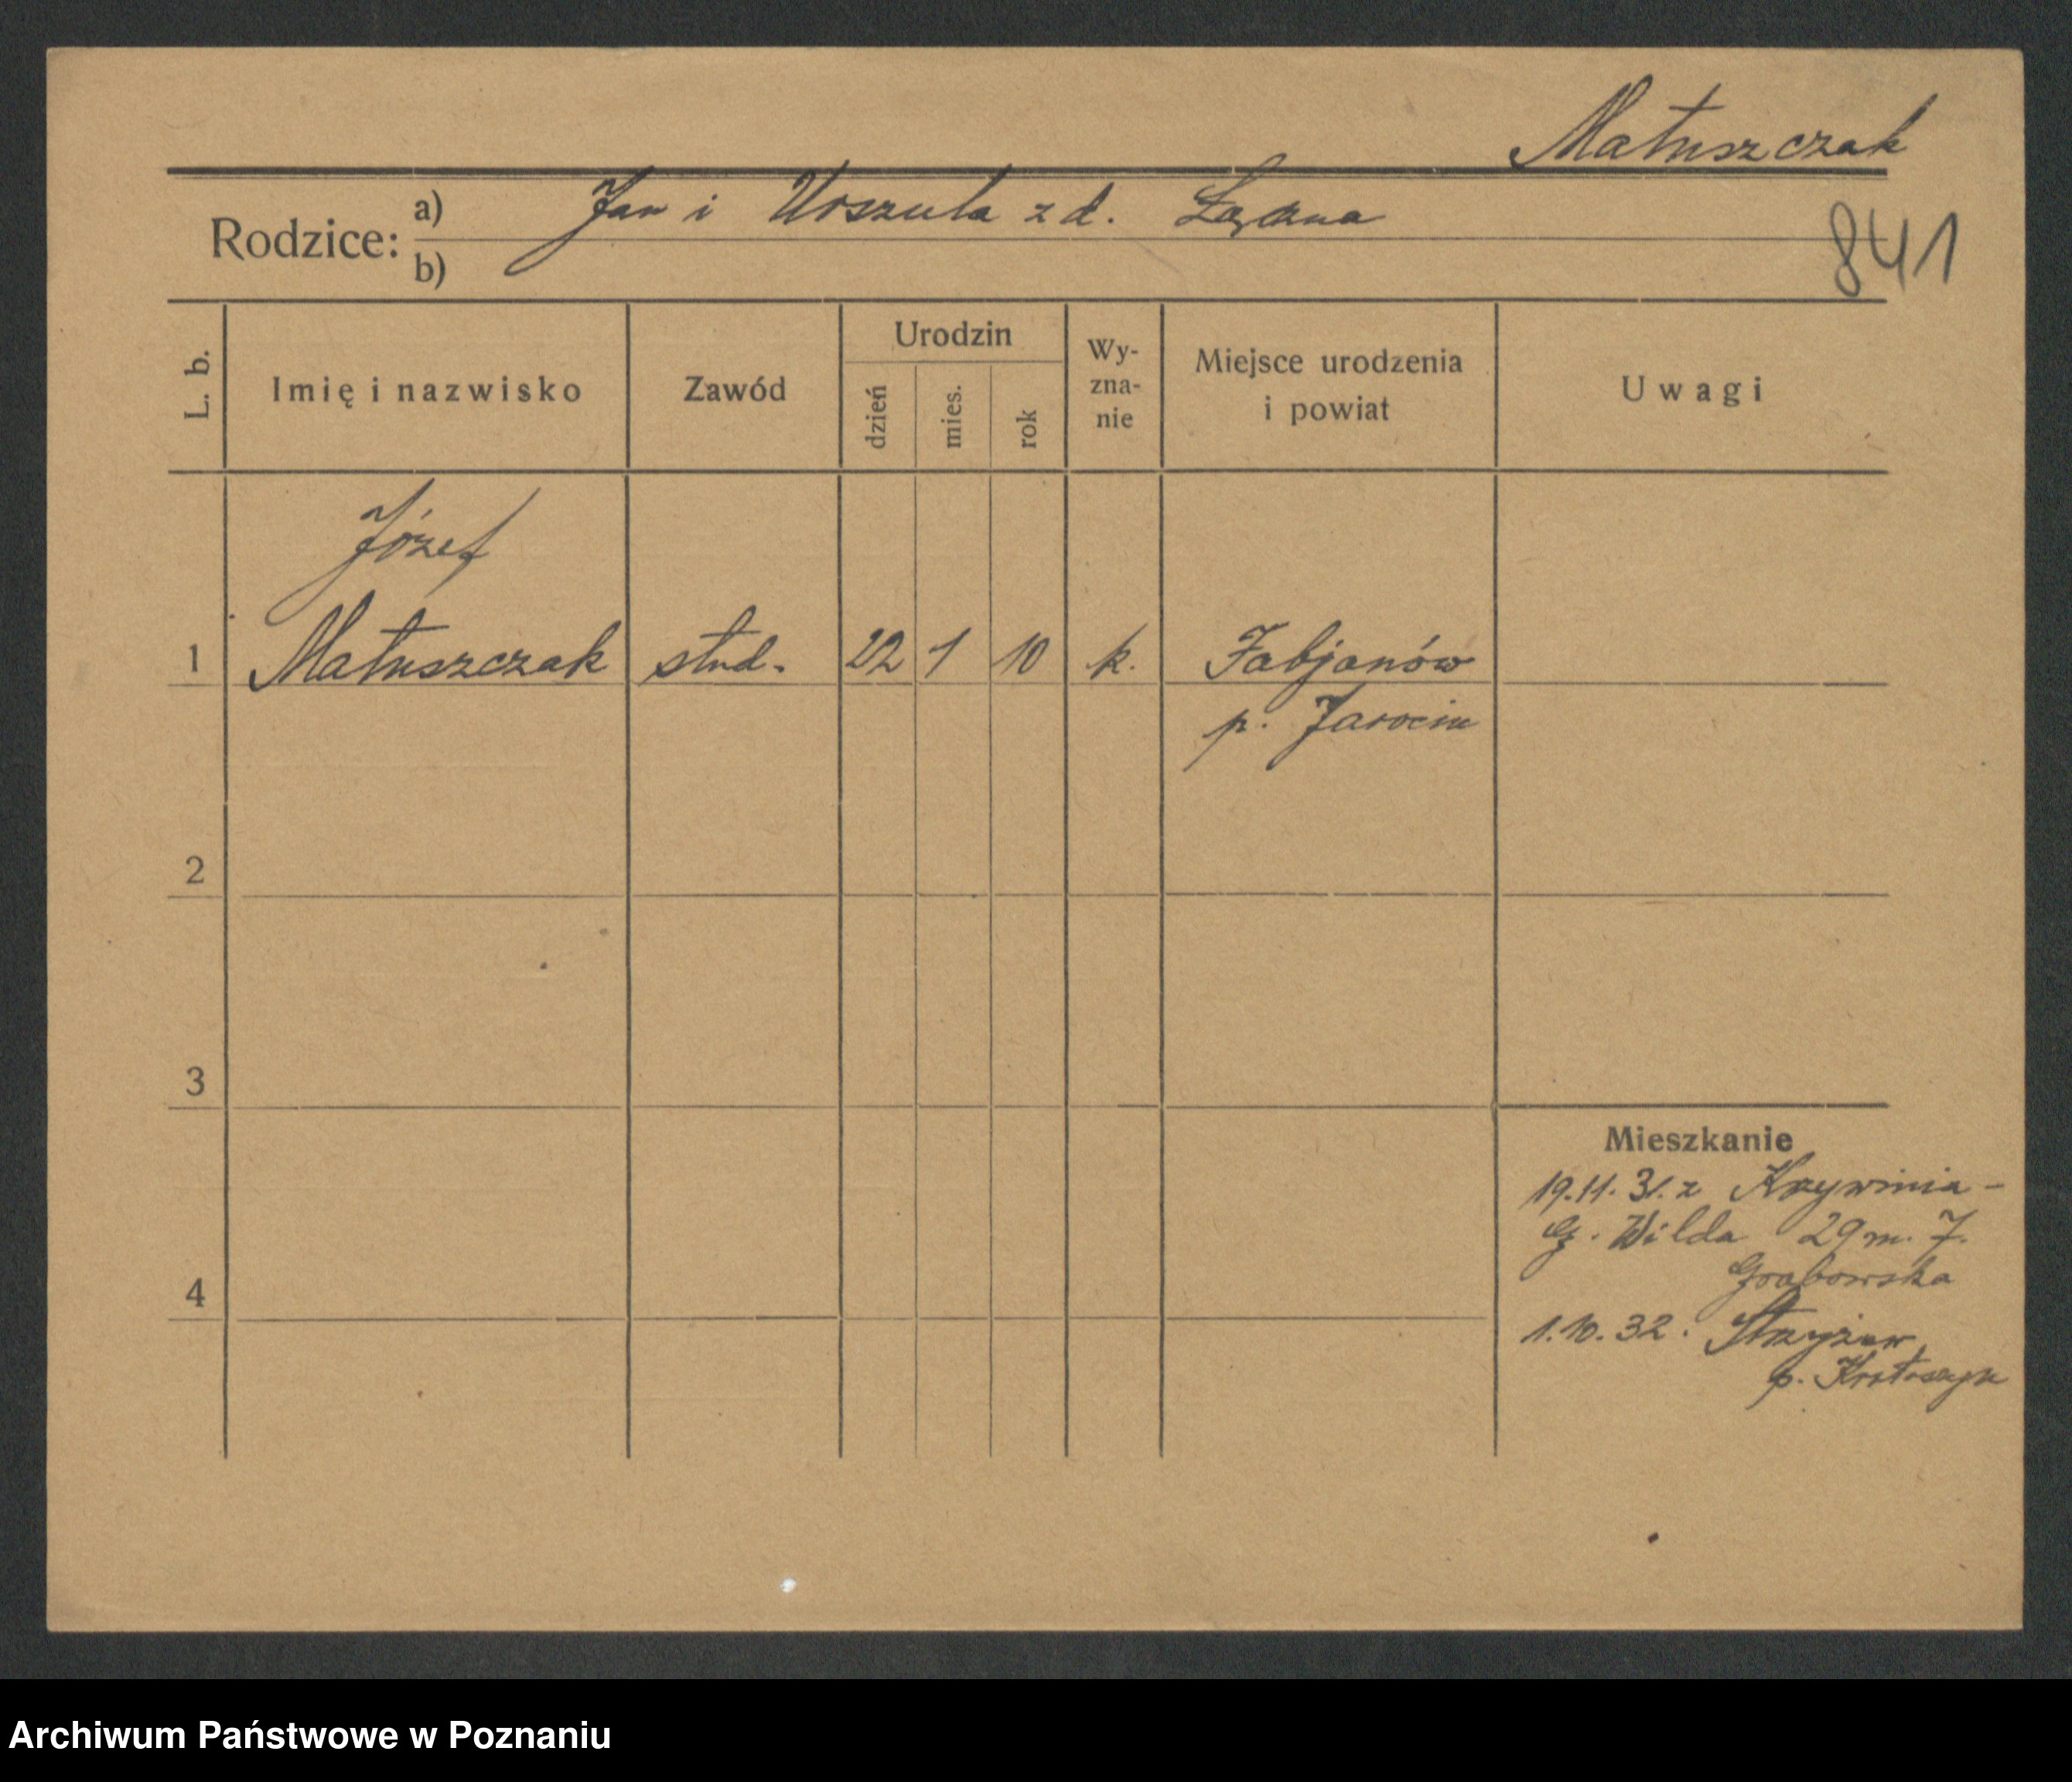 Matuszczak
Rodzice:
a) Jan i Urszula z d. Łączna
b)
841
L. b.
Imię i nazwisko
Zawód
Urodzin
dzień
mies.
rok
Wy-
zna-
nie
Miejsce urodzenia
i powiat
Uwagi
Józef
1 Matuszczak stud. 22 1 10 k. Fabjanów
p. Jarocin
2
3
Mieszkanie
19.11.31. z Krzywinia -
G. Wilda 29 m. 7.
Grabowska
4
1.10.32. Strzyżew
p. Krotoszyn
Archiwum Państwowe w Poznaniu